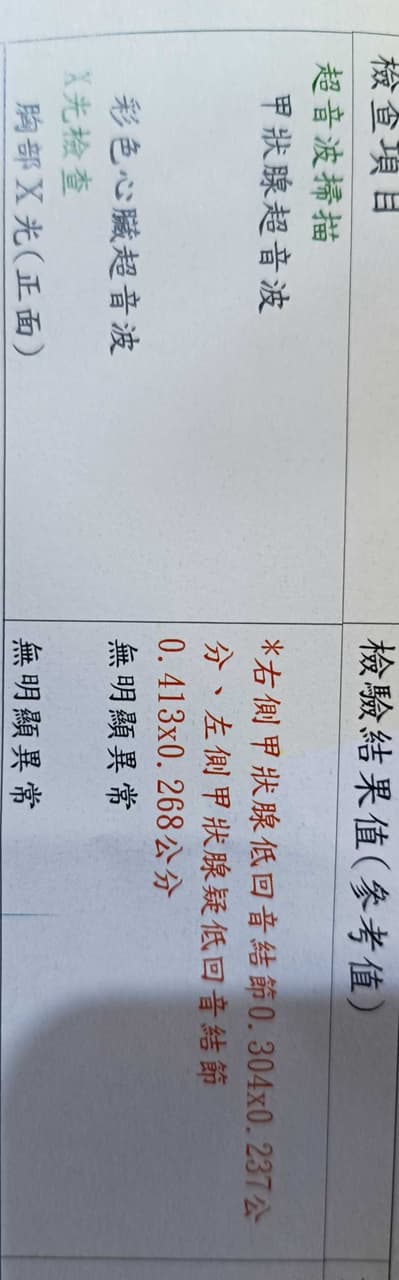 檢查項目
檢驗結果值(參考值)
超音波掃描
甲狀腺超音波
*右側甲狀腺低回音結節0.304x0.237公
分、左側甲狀腺疑低回音結節
0.413x0.268公分
彩色心臟超音波
無明顯異常
X光檢查
胸部X光(正面)
無明顯異常